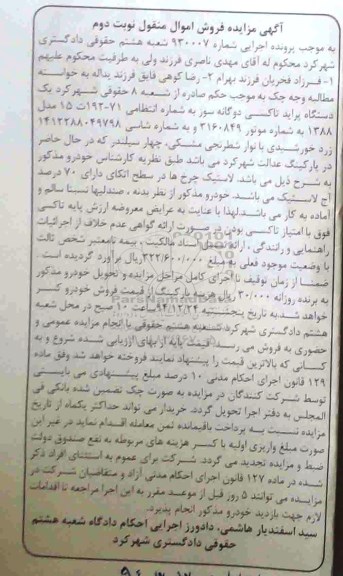 آگهی مزایده فروش اموال منقول نوبت دوم
به موجب پرونده اجرایی شماره ۹۳۰۰۰۷ شعبه هشتم حقوقی دادگستری
شهرکرد محکوم له آقای مهدی ناصری فرزند ولی به طرفیت محکوم علیهم
۱- فرزاد فخریان فرزند بهرام ۲- رضا کوهی فایق فرزند یداله به خواسته
مطالبه وجه چک به موجب حکم صادره از شعبه ۸ حقوقی شهرکرد یک
دستگاه پراید تاکسی دوگانه سوز به شماره انتظامی ۷۱-۱۹۳ت ۱۵ مدل
۱۳۸۸ به شماره موتور ۳۱۶۰۸۴۹ و به شماره شاسی ۱۴۱۲۲۸۸۰۴۹۷۹۸
زرد خورشیدی با نوار شطرنجی مشکی، چهار سیلندر که در حال حاضر
در پارکینگ عدالت شهرکرد می باشد طبق نظریه کارشناس خودرو مذکور
به شرح ذیل می باشد. لاستیک چرخ ها در سطح اتکای دارای ۷۰ درصد
آج لاستیک می باشد. خودرو مذکور از نظر بدنه ، صندلیها نسبتا سالم و
آماده به کار می باشد.لذا با عنایت به عرایض معروضه ارزش پایه تاکسی
فوق با امتیاز تاکسی بودن در صورت ارائه گواهی عدم خلاف از اجرائیات
راهنمایی و رانندگی ، ارائه اصل اسناد مالکیت ، بیمه نامعتبر شخص ثالث
با وضعیت موجود فعلی به مبلغ ۲۲۲/۶۰۰/۰۰۰ریال برآورد گردیده است .
ضمنا از زمان توقیف تا اجرای کامل مراحل مزایده و تحویل خودرو مذکور
به برنده روزانه ۳۰/۰۰۰ ریال هزینه پارکینگ از قیمت فروش خودرو کسر
خواهد شد.به تاریخ پنجشنبه ۹۴/۱۲/۲۴ ساعت ۱۰ صبح در محل شعبه
هشتم دادگستری شهرکرد شعبه هشتم حقوقی با انجام مزایده عمومی و
حضوری به فروش می رسد. قیمت پایه از بهای ارزیابی شده شروع و به
کسانی که بالاترین قیمت را پیشنهاد نمایند فروخته خواهد شد وفق ماده
۱۲۹ قانون اجرای احکام مدنی ۱۰ درصد مبلغ پیشنهادی می بایستی
توسط شرکت کنندگان در مزایده به صورت چک تضمین شده بانکی فی
المجلس به دفتر اجرا تحویل گردد. خریدار می تواند حداکثر یکماه از تاریخ
مزایده نسبت به پرداخت باقیمانده ثمن معامله اقدام نماید در غیر این
صورت مبلغ واریزی اولیه با کسر هزینه های مربوطه به نفع صندوق دولت
ضبط و مزایده تجدید می گردد. شرکت برای عموم به استثنای افراد ذکر
شده در ماده ۱۲۷ قانون اجرای احکام مدنی آزاد و متقاضیان شرکت در
مزایده می توانند ۵ روز قبل از موعد مقرر به این اجرا مراجعه تا اقدامات
لازم جهت بازدید خودرو مذکور انجام پذیرد.
سید اسفندیار هاشمی، دادورز اجرایی احکام دادگاه شعبه هشتم
حقوقی دادگستری شهرکرد